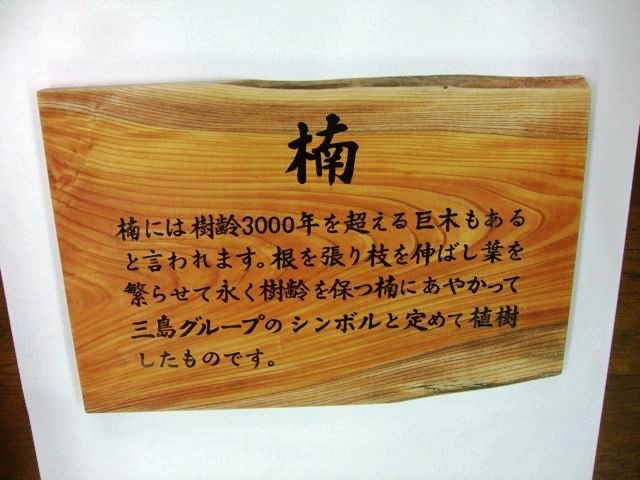 楠
楠には樹齢3000年を超える巨木もある
と言われます。根を張り枝を伸ばし葉を
繁らせて永く樹齢を保つ楠にあやかって
三島グループのシンボルと定めて植樹
したものです。